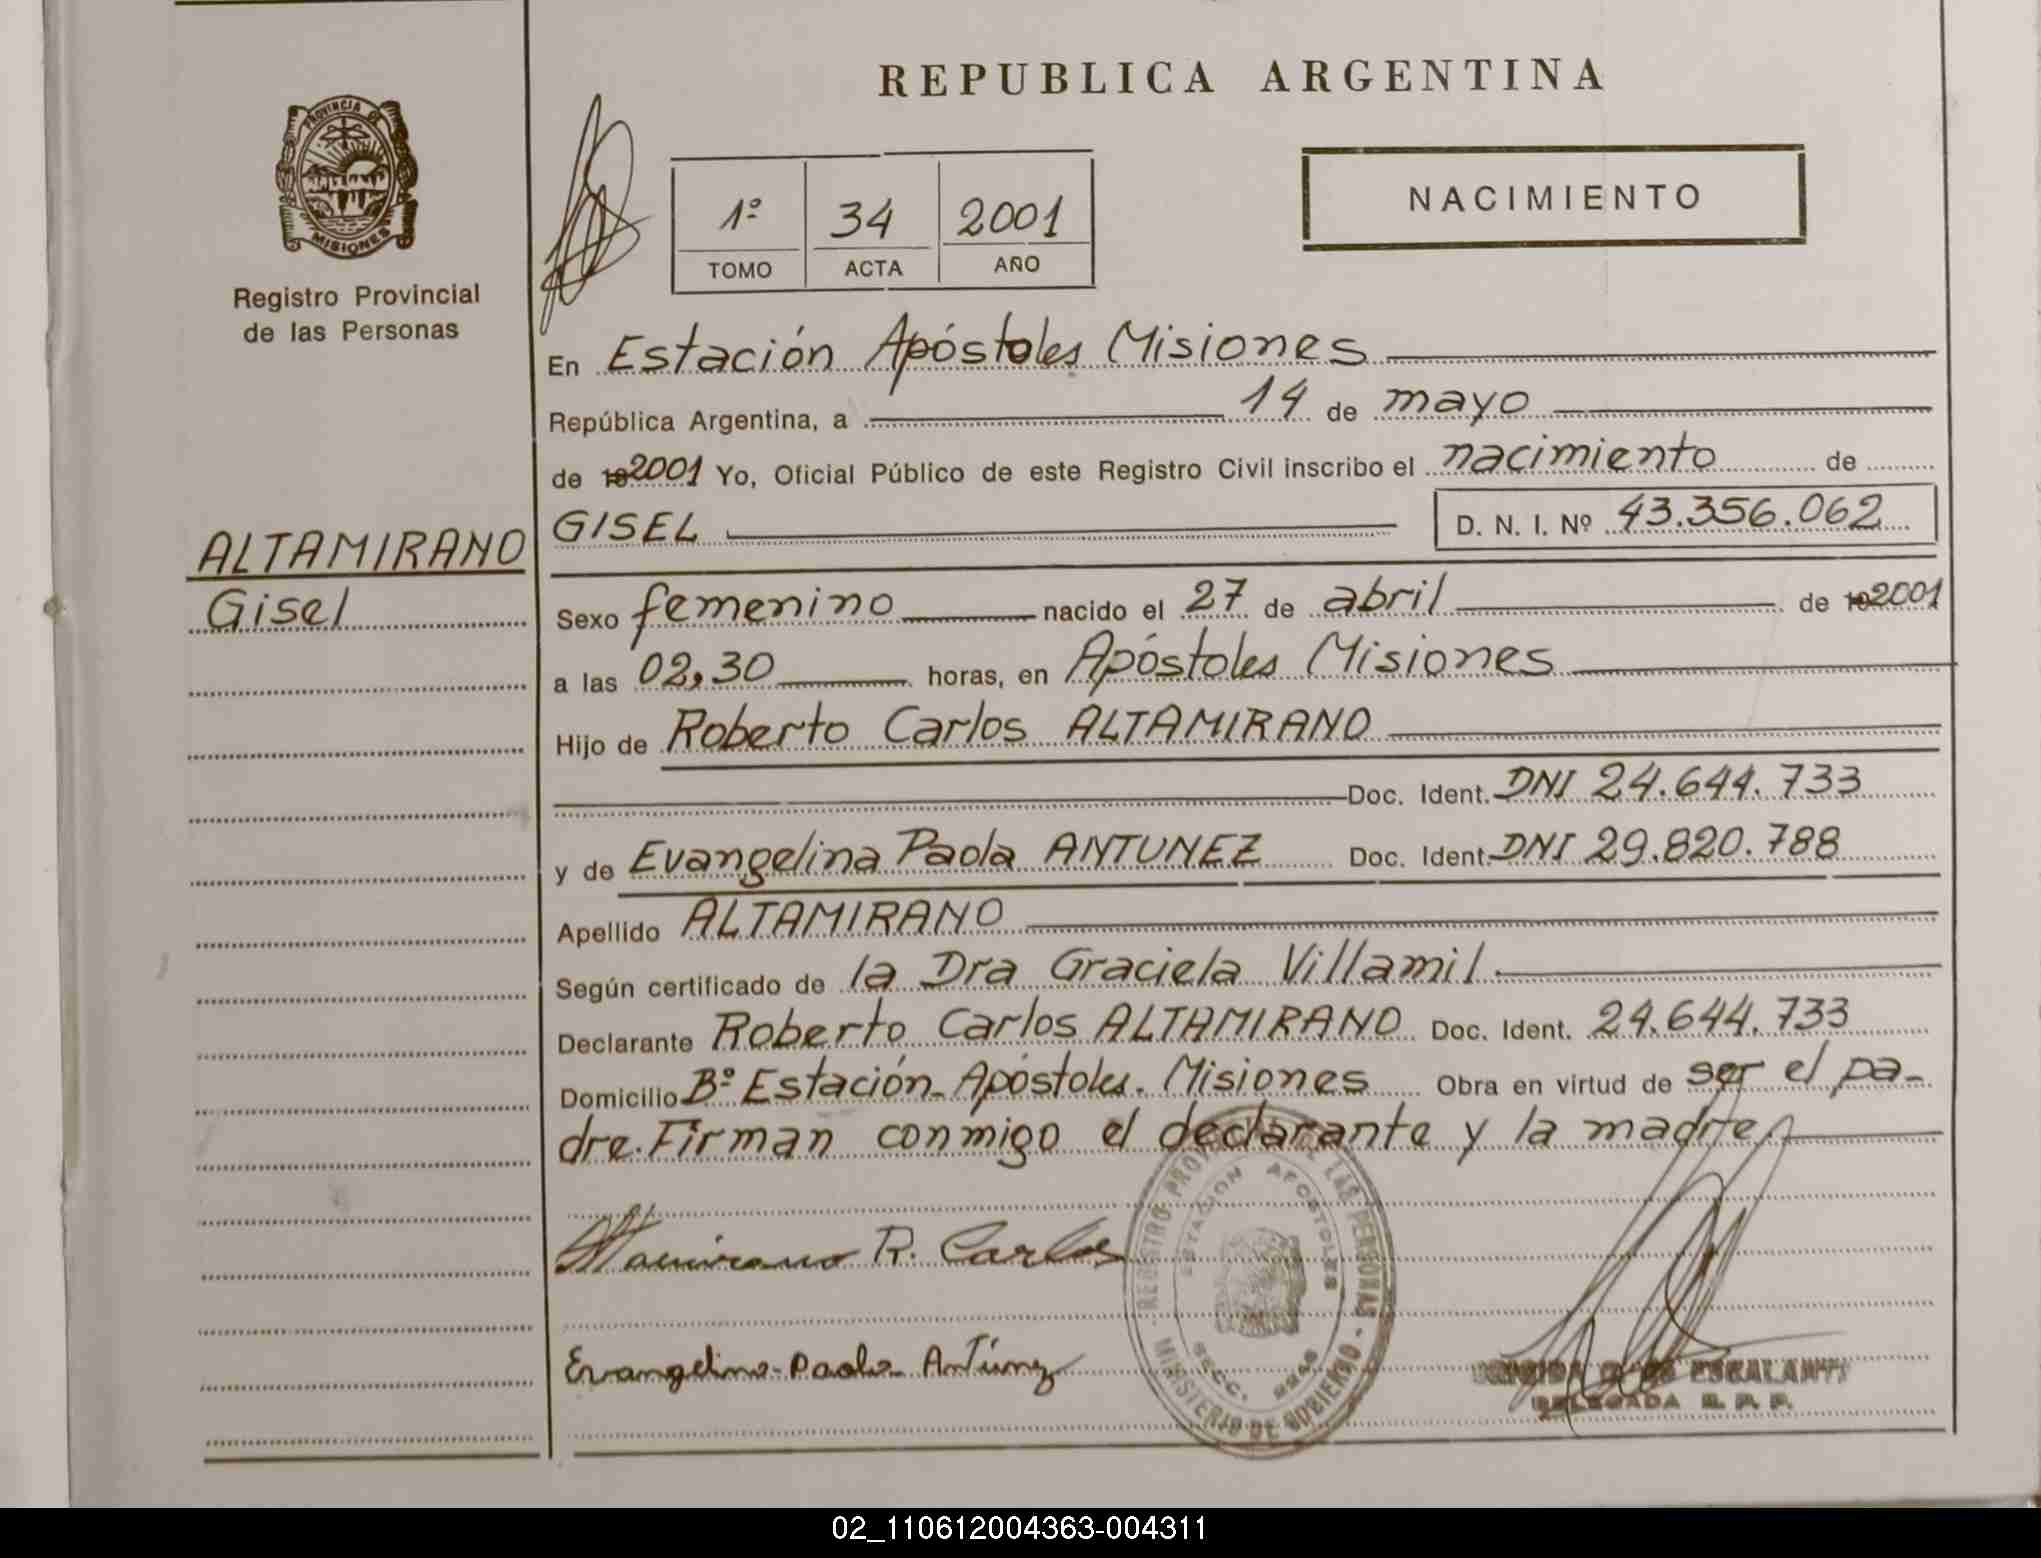 REPUBLICA ARGENTINA
PROVINCIA DE
MISIONES
Registro Provincial
de las Personas
1º 34 2001
TOMO ACTA AÑO
NACIMIENTO
En Estación Apóstoles Misiones
República Argentina, a 14 de mayo
de 2001 Yo, Oficial Público de este Registro Civil inscribo el nacimiento de
GISEL D. N. I. Nº 43.356.062
ALTAMIRANO
Gisel
Sexo femenino nacido el 27 de abril de 2001
a las 02,30 horas, en Apóstoles Misiones
Hijo de Roberto Carlos ALTAMIRANO
Doc. Ident. DNI 24.644.733
y de Evangelina Paola ANTUNEZ Doc. Ident. DNI 29.820.788
Apellido ALTAMIRANO
Según certificado de la Dra Graciela Villamil.
Declarante Roberto Carlos ALTAMIRANO Doc. Ident. 24.644.733
Domicilio Bº Estación Apóstoles. Misiones Obra en virtud de ser el pa-
dre. Firman conmigo el declarante y la madre
Altamirano R. Carlos
Evangelina Paola Antúnez
REGISTRO PROV LAS PERSONAS
ESTACION APOSTOLES
MINISTERIO DE GOBIERNO
SECC.
ESCALANTE
DELEGADA R. P. P.
02_110612004363-004311